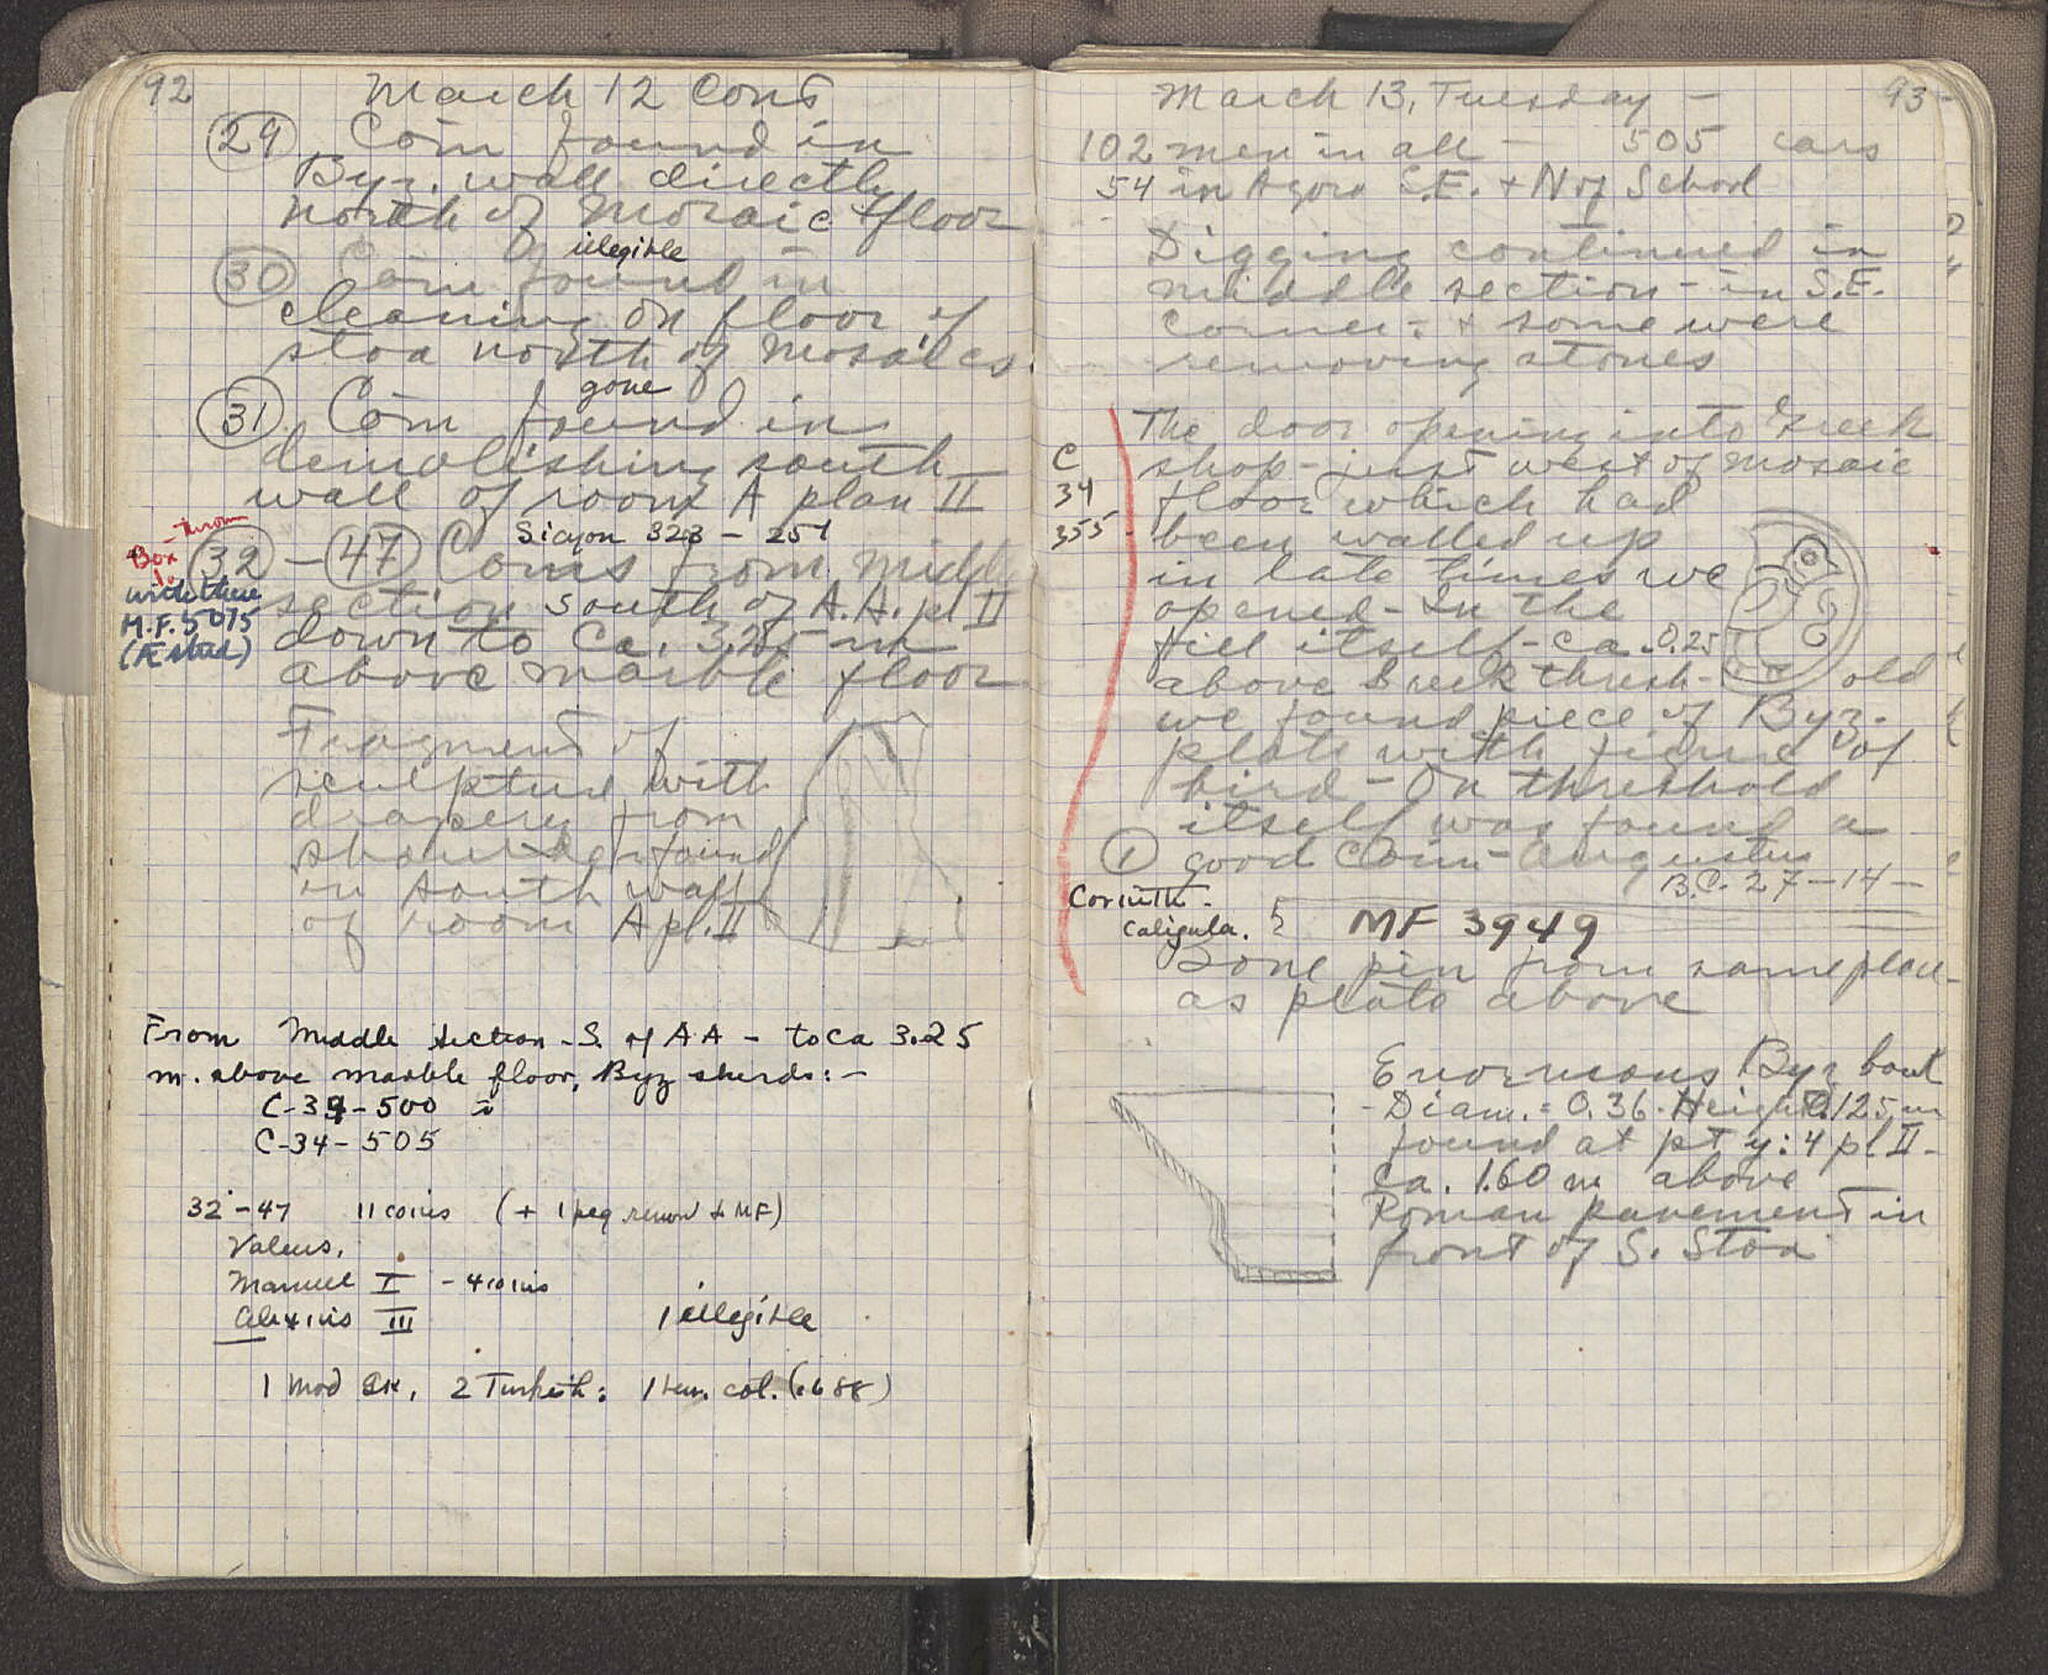 92
March 12 Cont
29 Coin found in
Byz. wall directly
north of Mosaic floor
illegible
30 Coin found in
cleaning on floor of
stoa north of Mosaics
gone
31 Coin found in
demolishing south
wall of room A plan II
Sicyon 323 - 251
32 - 47 Coins from middle
section south of A.A. pl II
down to Ca. 3.25 m
above marble floor
Box
with these
M.F. 5075
Fragment of
sculpture with
drapery from
shoulder found
in south wall
of room A pl. II
From Middle section - S. of AA - to ca 3.25
m. above marble floor, Byz sherds: -
C-34-500
C-34-505
32 - 47 11 coins (+ 1 peg removed to MF)
Valens,
Manuel I - 4 coins
Alexius III 1 illegible
1 Mod GK, 2 Turkish: 1 Ven. col. (.688)
March 13, Tuesday - 93 -
102 men in all - 505 cars
54 in Agora S.E. + N of School
Digging continued in
middle section - in S.E.
corner - + some were
removing stones
The door opening into Greek
shop - just west of Mosaic
floor which had
been walled up
in late times we
opened - In the
fill itself - ca. 0.25
above Greek thresh- old
we found piece of Byz.
plate with figure of
bird - On threshold
itself was found a
1 good coin - Augustus
B.C. 27 - 14 -
C
34
355
Corinth -
Caligula.
MF 3949
Bone pin from same place
as plate above
Enormous Byz bowl
- Diam. = 0.36. Height 0.125 m
found at pt y: 4 pl II -
Ca. 1.60 m above
Roman pavement in
front of S. Stoa